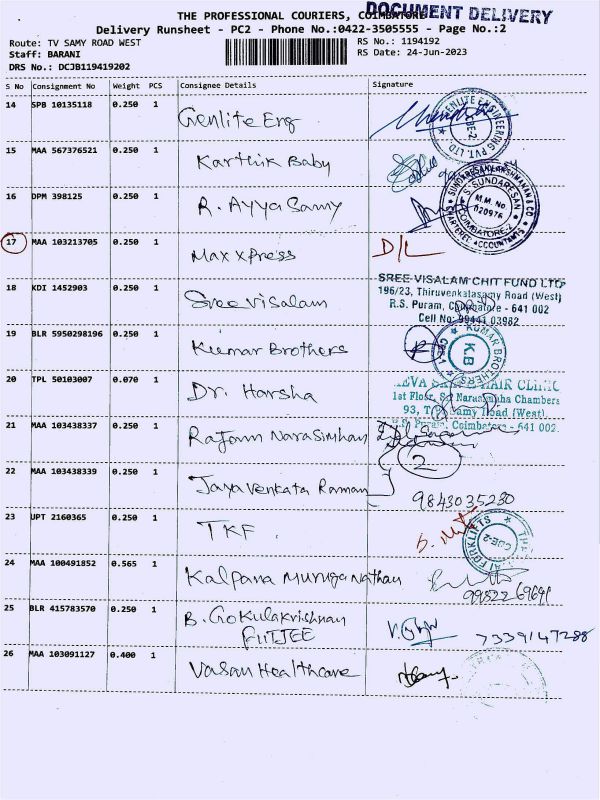 THE PROFESSIONAL COURIERS, COIMBATORE
DOCUMENT DELIVERY
Delivery Runsheet - PC2 - Phone No.:0422-3505555 - Page No.:2
Route: TV SAMY ROAD WEST
RS No.: 1194192
Staff: BARANI
RS Date: 24-Jun-2023
DRS No.: DCJB119419202
S No Consignment No Weight PCS Consignee Details Signature
14 SPB 10135118 0.250 1 Genlite Eng
GENLITE ENGINEERING PVT. LTD CBE-2
15 MAA 567376521 0.250 1 Karthik Baby
16 DPM 398125 0.250 1 R. Ayya Samy
SUNDARESAN LAKSHMANAN & CO
S. SUNDARESAN
M.M. No.
020976
COIMBATORE-2
CHARTERED ACCOUNTANTS
17 MAA 103213705 0.250 1 Max xpress D/L
18 KDI 1452903 0.250 1 Sree Visalam
SREE VISALAM CHIT FUND LTD
196/23, Thiruvenkatasamy Road (West)
R.S. Puram, Coimbatore - 641 002
Cell No: 99441 03982
19 BLR 5950298196 0.250 1 Kumar Brothers
KUMAR BROTHERS K.B CBE
20 TPL 50103007 0.070 1 Dr. Harsha
HAIR CLINIC
1st Floor, Sri Narasimha Chambers
93, T.V. Samy Road (West),
R.S. Puram, Coimbatore - 641 002.
21 MAA 103438337 0.250 1 Rajam Narasimhan
2
22 MAA 103438339 0.250 1 Jaya Venkata Raman
9843035280
23 UPT 2160365 0.250 1 TKF.
FORKLIFTS CBE-2
24 MAA 100491852 0.565 1 Kalpana Muruganathan
99522 69691
25 BLR 415783570 0.250 1 B. Gokulakrishnan
FIITJEE
7339147288
26 MAA 103091127 0.400 1 Vasan Healthcare